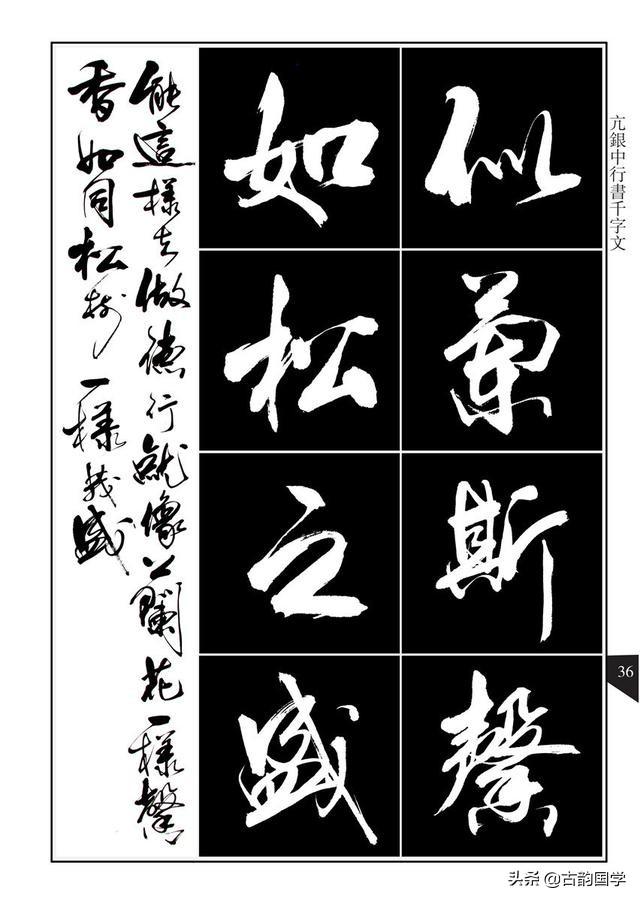 亢銀中行書千字文
似蘭斯馨
如松之盛
能這樣去做德行就像蘭花一樣馨
香如同松樹一樣茂盛
36
头条 @古韵国学